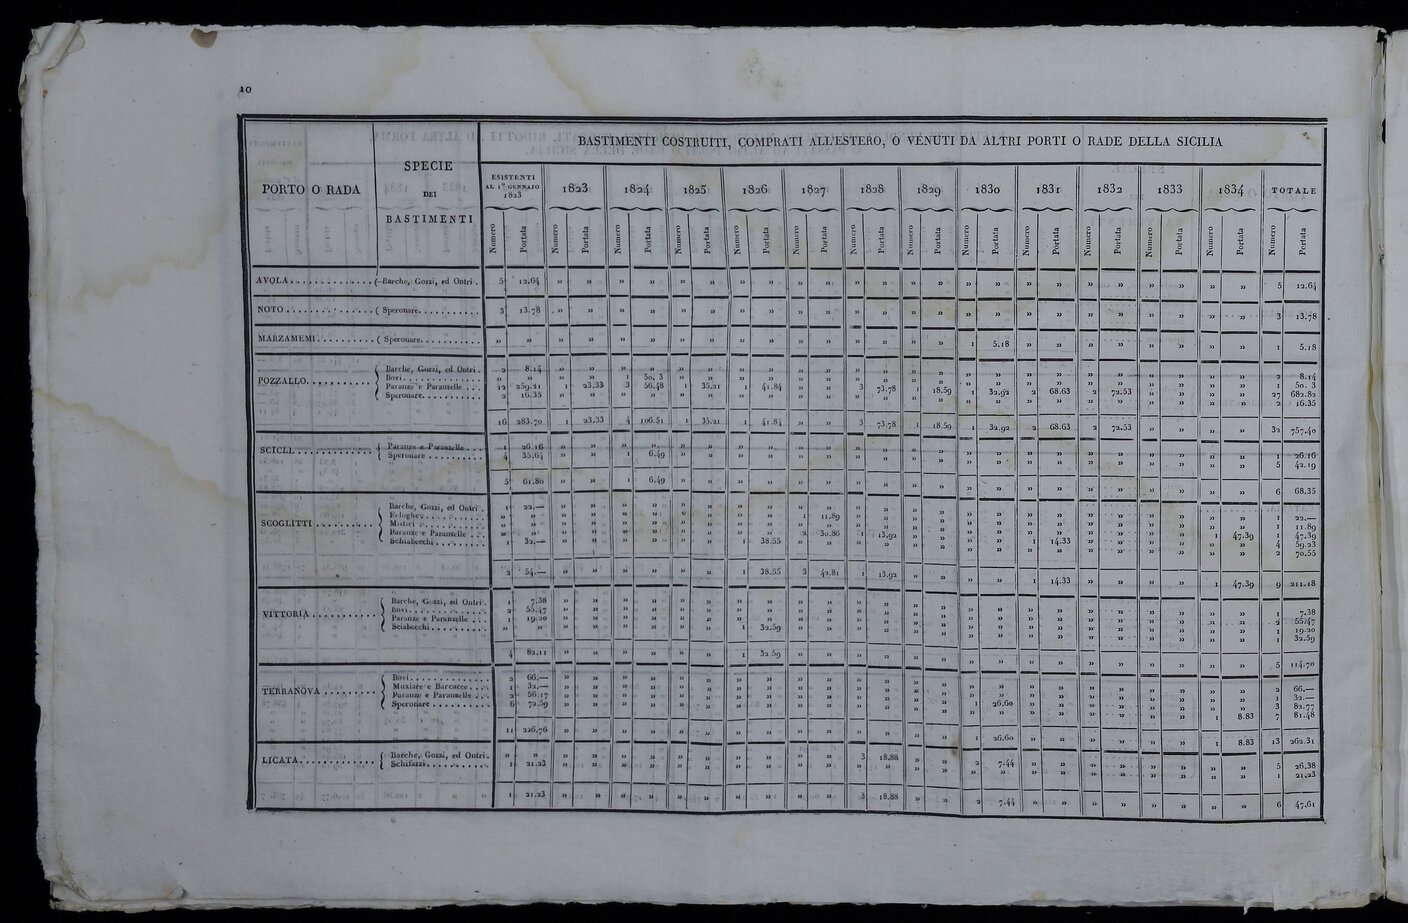 10
BASTIMENTI COSTRUITI, COMPRATI ALL'ESTERO, O VENUTI DA ALTRI PORTI O RADE DELLA SICILIA
PORTO O RADA SPECIE DEI BASTIMENTI ESISTENTI AL 1º GENNAJO 1823 1823 1824 1825 1826 1827 1828 1829 1830 1831 1832 1833 1834 TOTALE
Numero Portata Numero Portata Numero Portata Numero Portata Numero Portata Numero Portata Numero Portata Numero Portata Numero Portata Numero Portata Numero Portata Numero Portata Numero Portata Numero Portata
AVOLA ( Barche, Gozzi, ed Ontri. 5 12.64 » » » » » » » » » » » » » » » » » » » » » » » » 5 12.64
NOTO ( Speronare 3 13.78 » » » » » » » » » » » » » » » » » » » » » » » » 3 13.78
MARZAMEMI ( Speronare » » » » » » » » » » » » » » » » 1 5.18 » » » » » » » » 1 5.18
POZZALLO Barche, Gozzi, ed Ontri. 2 8.14 » » » » » » » » » » » » » » » » » » » » » » » » 2 8.14
Bovi » » » » 1 50. 3 » » » » » » » » » » » » » » » » » » » » 1 50. 3
Paranze e Paranzelle 12 259.21 1 23.33 3 56.48 1 35.21 1 41.84 » » 3 73.78 1 18.59 1 32.92 2 68.63 2 72.53 » » » » 27 682.82
Speronare 2 16.35 » » » » » » » » » » » » » » » » » » » » » » » » 2 16.35
16 283.70 1 23.33 4 106.51 1 35.21 1 41.84 » » 3 73.78 1 18.59 1 32.92 2 68.63 2 72.53 » » » » 32 757.40
SCICLI Paranze e Paranzelle 1 26.16 » » » » » » » » » » » » » » » » » » » » » » » » 1 26.16
Speronare 4 35.64 » » 1 6.49 » » » » » » » » » » » » » » » » » » » » 5 42.19
5 61.80 » » 1 6.49 » » » » » » » » » » » » » » » » » » » » 6 68.35
SCOGLITTI Barche, Gozzi, ed Ontri. 1 22.— » » » » » » » » » » » » » » » » » » » » » » » » 1 22.—
Feloghe » » » » » » » » » » 1 11.89 » » » » » » » » » » » » » » 1 11.89
Mistici » » » » » » » » » » » » » » » » » » » » » » » » 1 47.39 1 47.39
Paranze e Paranzelle » » » » » » » » » » 2 30.86 1 13.92 » » » » 1 14.33 » » » » » » 4 59.23
Schiabecchi 1 32.— » » » » » » 1 38.55 » » » » » » » » » » » » » » » » 2 70.55
2 54.— » » » » » » 1 38.55 3 42.81 1 13.92 » » » » 1 14.33 » » » » 1 47.39 9 211.18
VITTORIA Barche, Gozzi, ed Ontri. 1 7.38 » » » » » » » » » » » » » » » » » » » » » » » » 1 7.38
Bovi 2 55.47 » » » » » » » » » » » » » » » » » » » » » » » » 2 55.47
Paranze e Paranzelle 1 19.20 » » » » » » » » » » » » » » » » » » » » » » » » 1 19.20
Sciabecchi » » » » » » » » 1 32.59 » » » » » » » » » » » » » » » » 1 32.59
4 82.11 » » » » » » 1 32.59 » » » » » » » » » » » » » » » » 5 114.70
TERRANOVA Bovi 2 66.— » » » » » » » » » » » » » » » » » » » » » » » » 2 66.—
Muxiare e Barcacce 1 32.— » » » » » » » » » » » » » » » » » » » » » » » » 1 32.—
Paranze e Paranzelle 2 56.17 » » » » » » » » » » » » » » 1 26.60 » » » » » » » » 3 82.77
Speronare 6 72.59 » » » » » » » » » » » » » » » » » » » » » » 1 8.83 7 81.48
11 226.76 » » » » » » » » » » » » » » 1 26.60 » » » » » » 1 8.83 13 262.31
LICATA Barche, Gozzi, ed Ontri. » » » » » » » » » » » » 3 18.88 » » 2 7.44 » » » » » » » » 5 26.38
Schifazzi 1 21.23 » » » » » » » » » » » » » » » » » » » » » » » » 1 21.23
1 21.23 » » » » » » » » » » 3 18.88 » » 2 7.44 » » » » » » » » 6 47.61